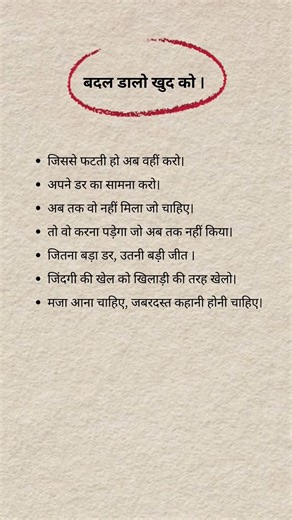 बदल डालो खुद को ।
• जिससे फटती हो अब वहीं करो।
• अपने डर का सामना करो।
• अब तक वो नहीं मिला जो चाहिए।
• तो वो करना पड़ेगा जो अब तक नहीं किया।
• जितना बड़ा डर, उतनी बड़ी जीत ।
• जिंदगी की खेल को खिलाड़ी की तरह खेलो।
• मजा आना चाहिए, जबरदस्त कहानी होनी चाहिए।